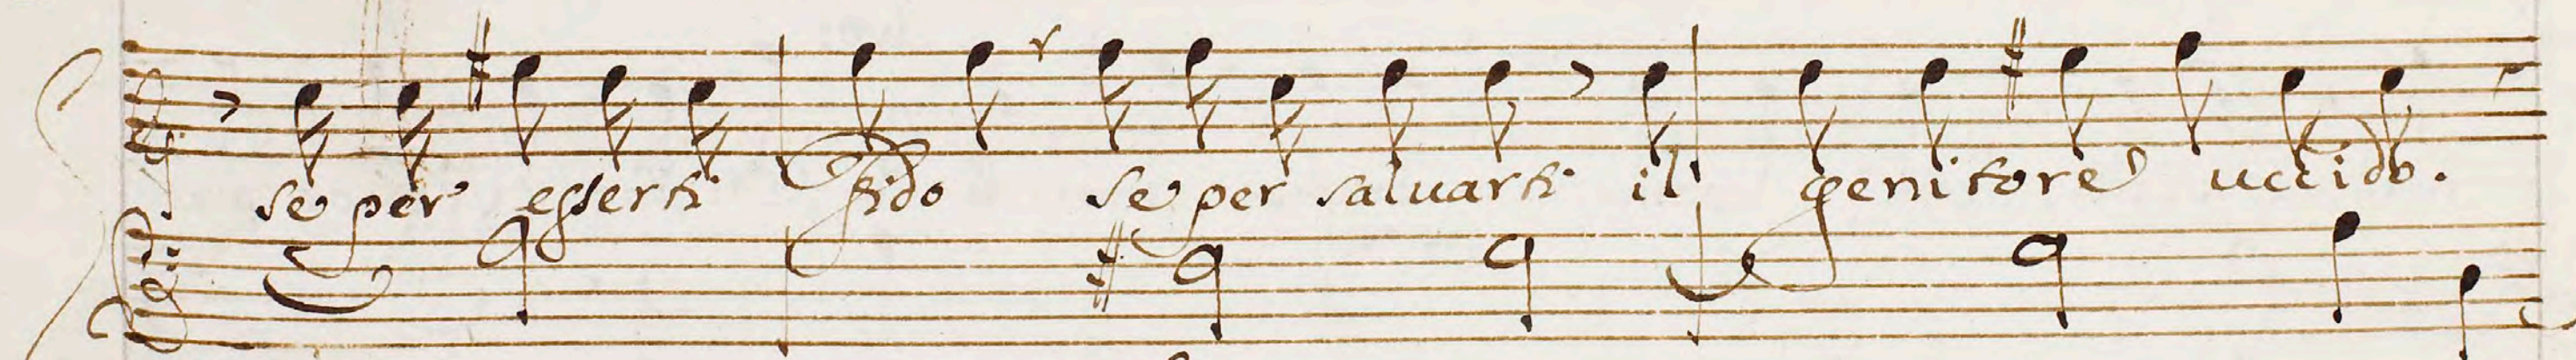 se per esserti fido se per saluarti il genitore uccido.